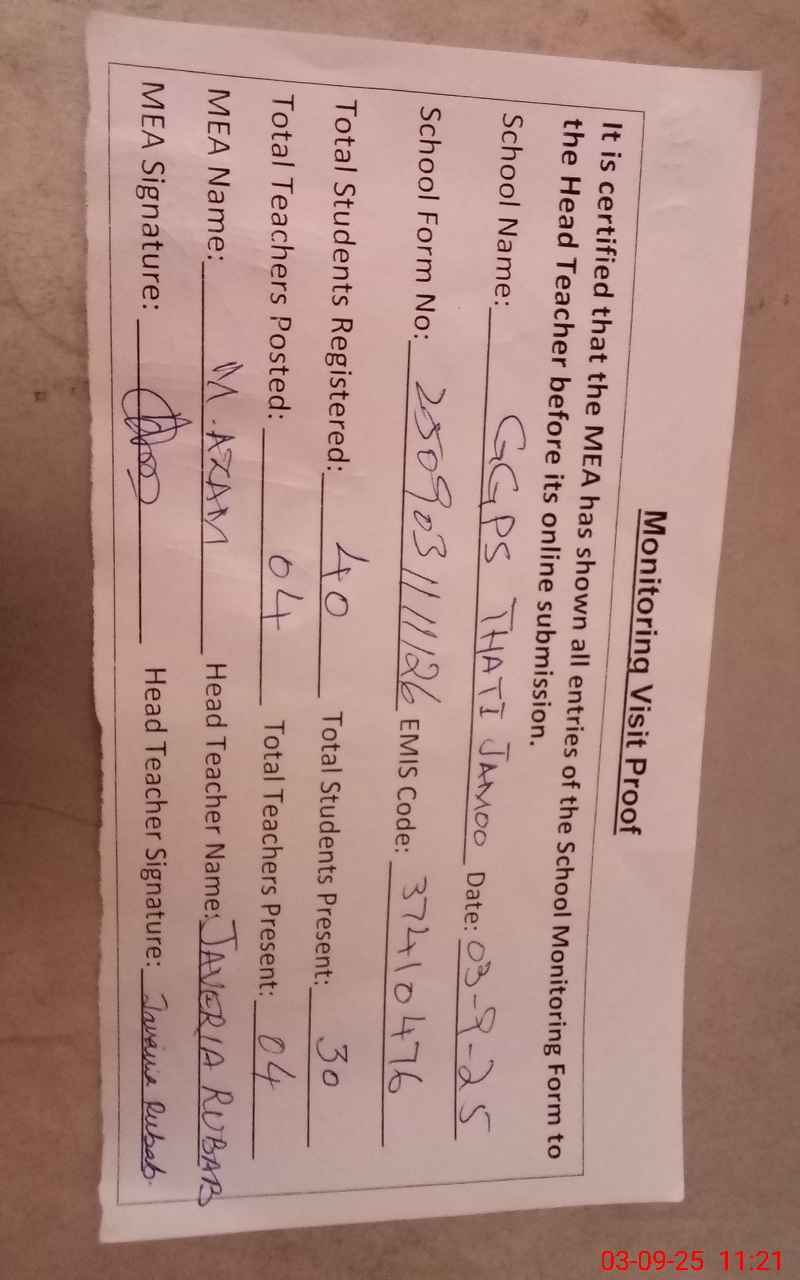 Monitoring Visit Proof
It is certified that the MEA has shown all entries of the School Monitoring Form to
the Head Teacher before its online submission.
School Name: GGPS THATI JAMOO Date: 03-9-25
School Form No: 250903111126 EMIS Code: 37410476
Total Students Registered: 40 Total Students Present: 30
Total Teachers Posted: 04 Total Teachers Present: 04
MEA Name: M. AZAM Head Teacher Name: JAVERIA RUBAB
MEA Signature: Head Teacher Signature: Javeria Rubab
03-09-25 11:21